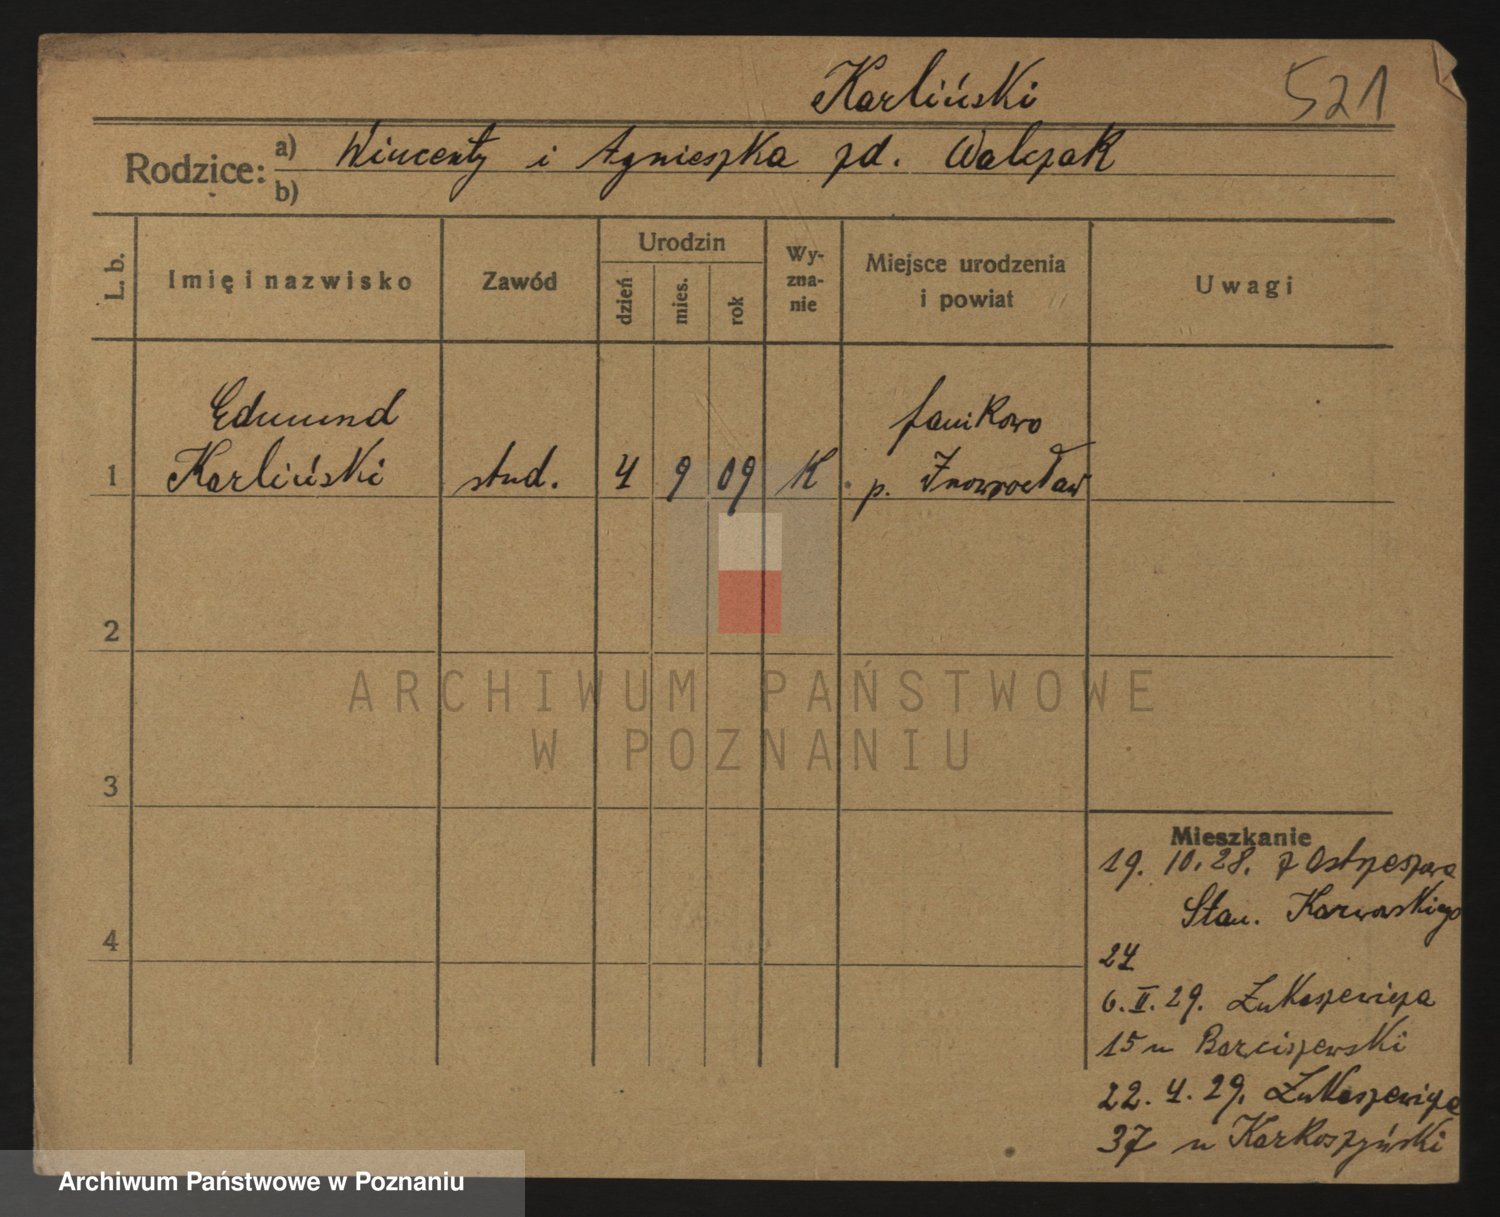 Karliński
521
Rodzice:
a) Wincenty i Agnieszka zd. Walczak
b)
L. b.
Imię i nazwisko
Zawód
Urodzin
dzień
mies.
rok
Wy-
zna-
nie
Miejsce urodzenia
i powiat
Uwagi
Edmund
Karliński
1
stud.
4
9
09
K
Janikowo
p. Inowrocław
2
ARCHIWUM PAŃSTWOWE
W POZNANIU
3
4
Mieszkanie
19. 10. 28. z Ostrzeszowa
Stan. Karwowskiego
24
6. II. 29. Łukaszewicza
15 u Barciszewski
22. 4. 29. Łukaszewicza
37 u Karkoszyński
Archiwum Państwowe w Poznaniu